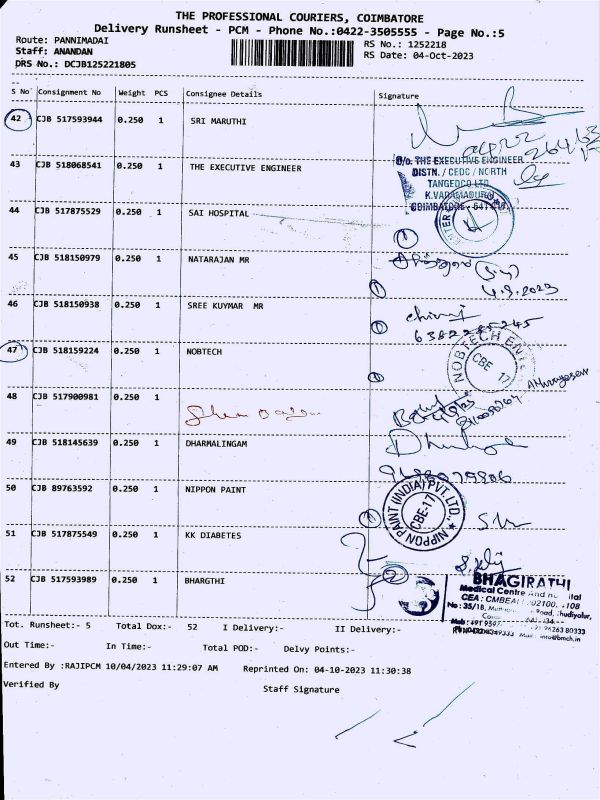 THE PROFESSIONAL COURIERS, COIMBATORE
Delivery Runsheet - PCM - Phone No.:0422-3505555 - Page No.:5
Route: PANNIMADAI
RS No.: 1252218
Staff: ANANDAN
RS Date: 04-Oct-2023
DRS No.: DCJB125221805
S No Consignment No Weight PCS Consignee Details Signature
42 CJB 517593944 0.250 1 SRI MARUTHI
43 CJB 518068541 0.250 1 THE EXECUTIVE ENGINEER
O/o. THE EXECUTIVE ENGINEER
DISTN. / CEDC / NORTH
TANGEDCO LTD
44 CJB 517875529 0.250 1 SAI HOSPITAL
45 CJB 518150979 0.250 1 NATARAJAN MR
4.9.2023
46 CJB 518150938 0.250 1 SREE KUYMAR MR
47 CJB 518159224 0.250 1 NOBTECH
NOBTECH ENT
CBE 17
48 CJB 517900981 0.250 1
49 CJB 518145639 0.250 1 DHARMALINGAM
50 CJB 89763592 0.250 1 NIPPON PAINT
NIPPON PAINT (INDIA) PVT. LTD.
CBE-17
51 CJB 517875549 0.250 1 KK DIABETES
52 CJB 517593989 0.250 1 BHARGTHI
2
BHAGIRATHI
Medical Centre And
No : 35/18,
Tot. Runsheet:- 5 Total Dox:- 52 I Delivery:- II Delivery:-
Out Time:- In Time:- Total POD:- Delvy Points:-
Entered By :RAJIPCM 10/04/2023 11:29:07 AM Reprinted On: 04-10-2023 11:30:38
Verified By Staff Signature